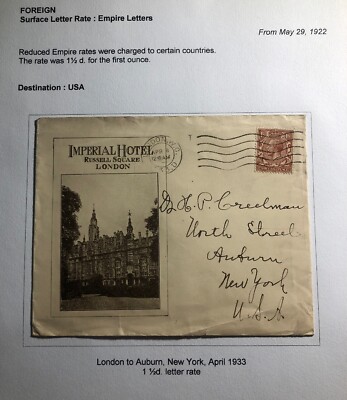 FOREIGN
Surface Letter Rate : Empire Letters
From May 29, 1922
Reduced Empire rates were charged to certain countries.
The rate was 1½ d. for the first ounce.
Destination : USA
IMPERIAL HOTEL
RUSSELL SQUARE
LONDON
H. P. Creelman
North Street
Auburn
New York
U.S.A
London to Auburn, New York, April 1933
1 ½d. letter rate